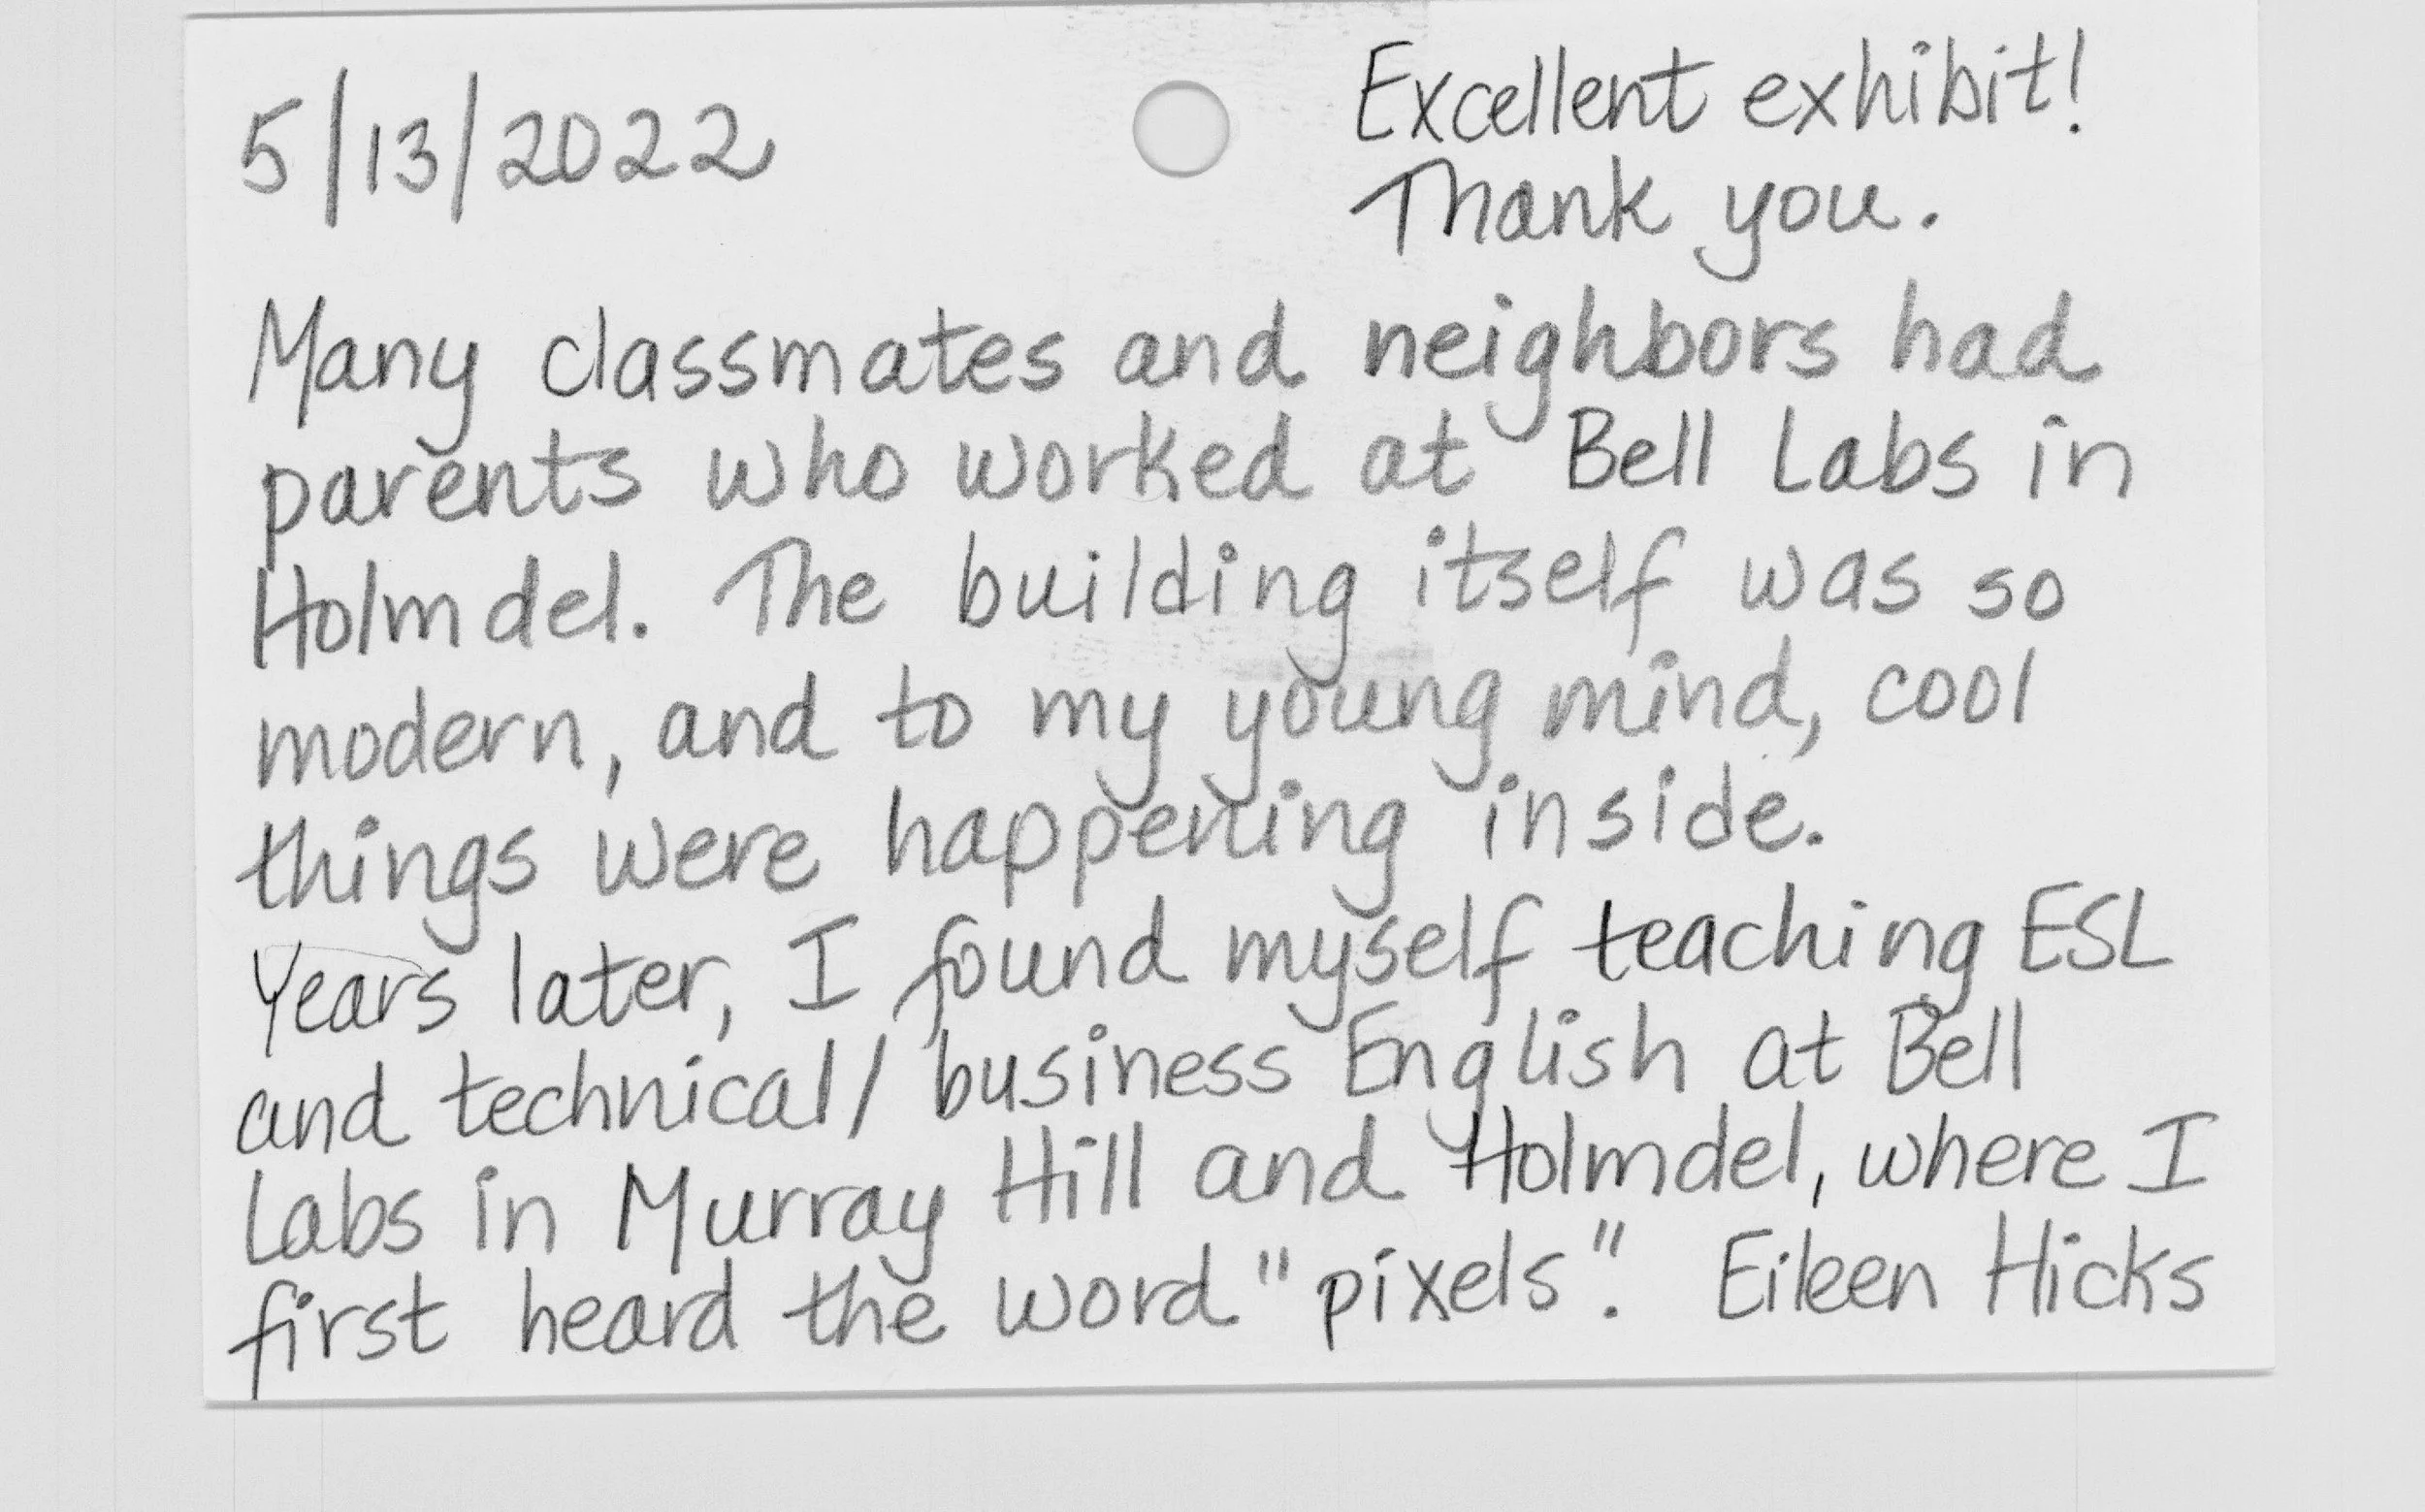 5/13/2022
Excellent exhibit!
Thank you.
Many classmates and neighbors had
parents who worked at Bell Labs in
Holmdel. The building itself was so
modern, and to my young mind, cool
things were happening inside.
Years later, I found myself teaching ESL
and technical/business English at Bell
Labs in Murray Hill and Holmdel, where I
first heard the word "pixels". Eileen Hicks